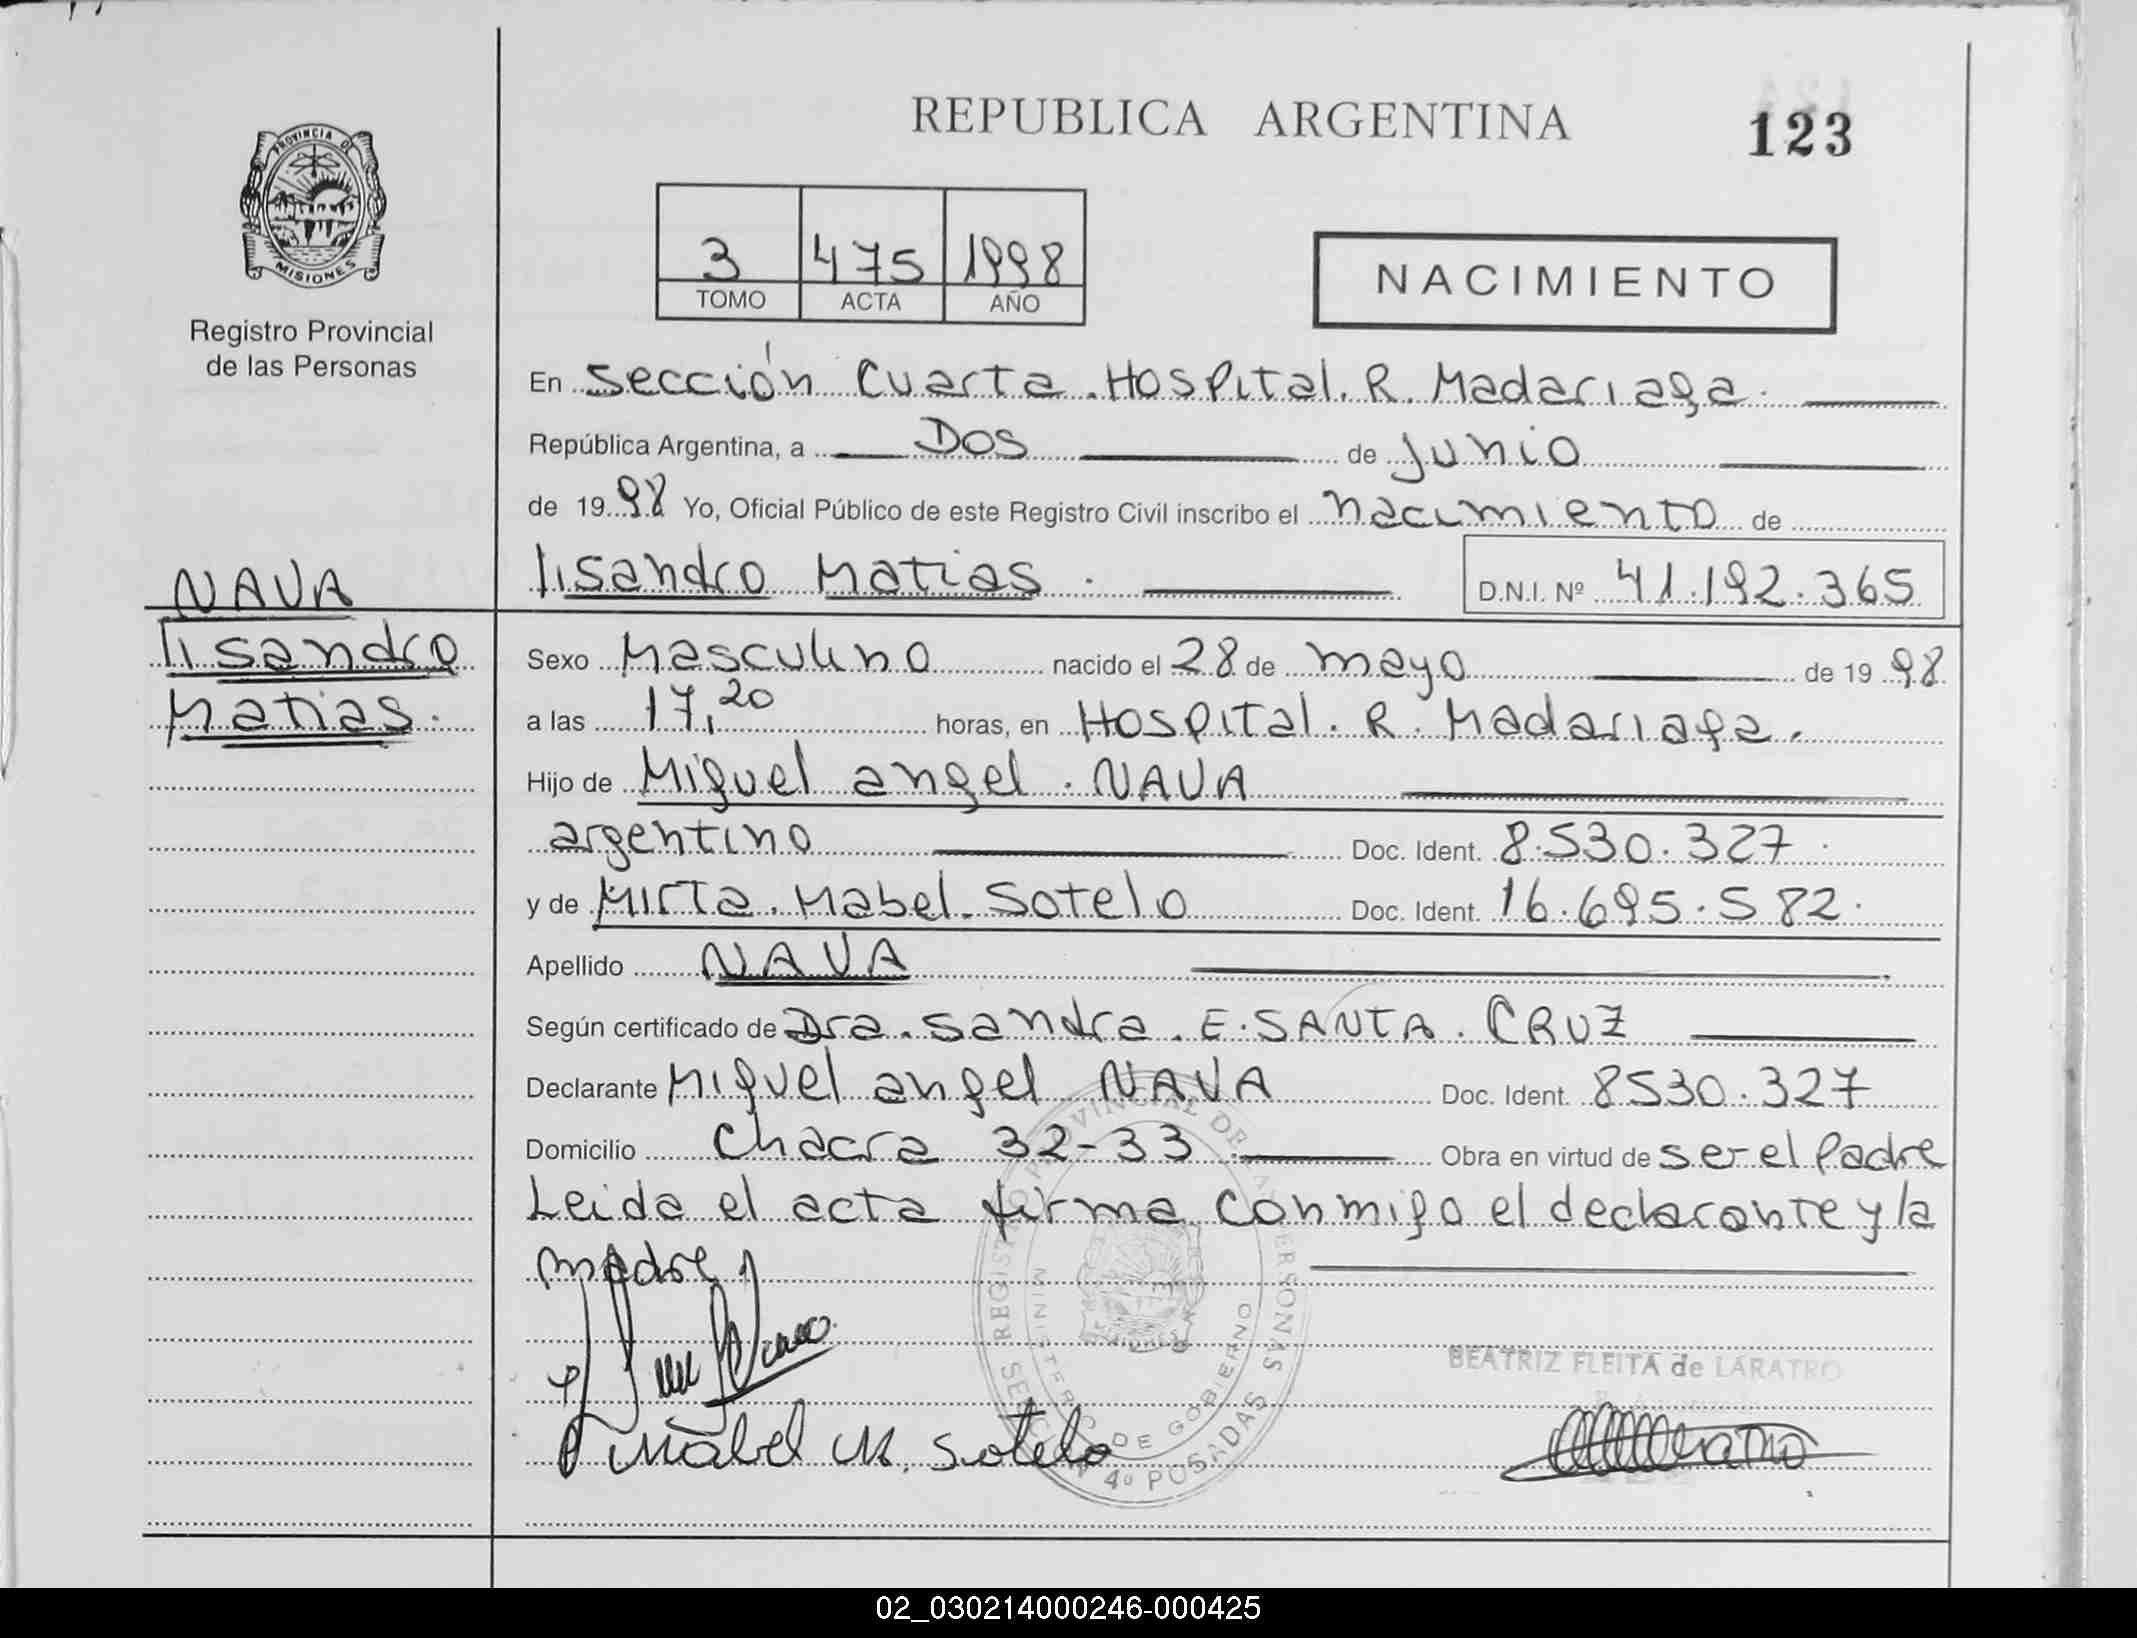 REPUBLICA ARGENTINA
123
PROVINCIA DE
MISIONES
Registro Provincial
de las Personas
3 475 1998
TOMO ACTA AÑO
NACIMIENTO
En Sección Cuarta. Hospital. R. Madariaga.
República Argentina, a Dos de Junio
de 1998 Yo, Oficial Público de este Registro Civil inscribo el nacimiento de
lisandro Matias. D.N.I. Nº 41.192.365
NAVA
lisandro
Matias.
Sexo Masculino nacido el 28 de mayo de 1998
a las 17,20 horas, en Hospital. R. Madariaga.
Hijo de Miguel angel. NAVA
argentino Doc. Ident. 8.530.327.
y de Mirta. Mabel. Sotelo Doc. Ident. 16.695.582.
Apellido NAVA
Según certificado de Dra. Sandra. E. SANTA. CRUZ
Declarante Miguel angel NAVA Doc. Ident. 8530.327
Domicilio Chacra 32-33. Obra en virtud de ser el Padre
Leida el acta firma conmigo el declarante y la
madre
REGISTRO PROVINCIAL DE LAS PERSONAS
MINISTERIO DE GOBIERNO
SECCION 4º POSADAS
BEATRIZ FLEITA de LARATRO
Mabel M. Sotelo
02_030214000246-000425